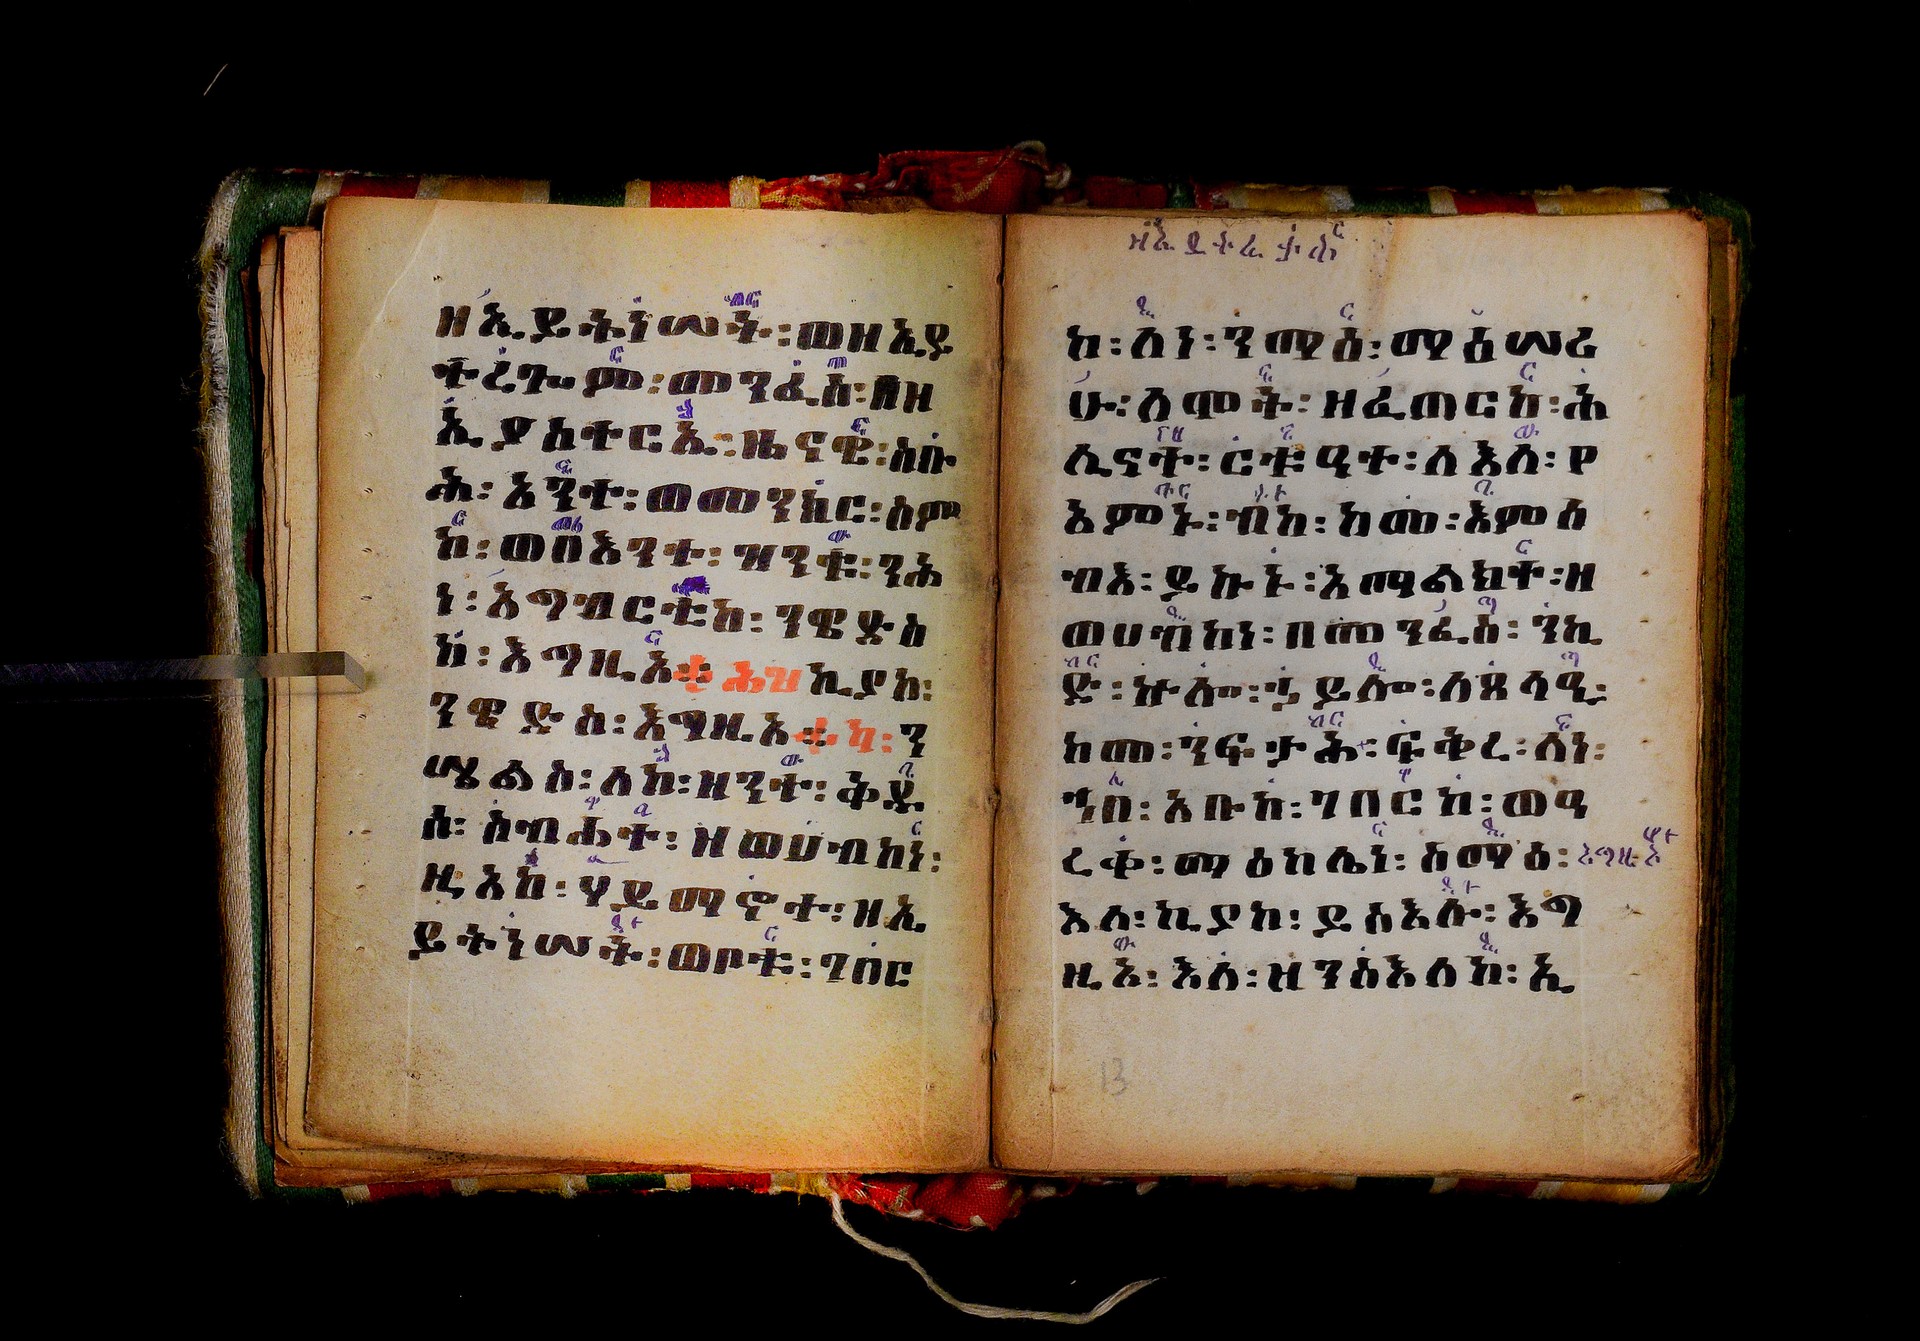 ዘኢይትነሠት፡ወዘኢያ
ተረጐም፡መንፈስ፡በዘ
ኢያስተርኢ፡ዜናዊ፡ስቡ
ሕ፡አንተ፡ወመንክር፡ስም
ከ፡ወበእንተ፡ዝንቱ፡ንሕ
ነ፡አግብርቲከ፡ንዌድሰ
ከ፡እግዚአ፡ሕዝ ኪያከ፡
ንዌድስ፡እግዚአ፡ካ፡ን
ሤልስ፡ለከ፡ዘንተ፡ቅዳ
ሴ፡ስብሐተ፡ዘወሀብከነ፡
ዚአከ፡ሃይማኖተ፡ዘኢ
ይትነሠት፡ወቦቱ፡ገበር
ዘኢይተረታዕ
ከ፡ለነ፡ንማዕ፡ማዕሠረ
ሁ፡ለሞት፡ዘፈጠርከ፡ሕ
ሊናት፡ርቱዓተ፡ለእለ፡የ
አምኑ፡ብከ፡ከመ፡እምሰ
ብእ፡ይኩኑ፡አማልክተ፡ዘ
ወሀብከነ፡በመንፈስ፡ንኪ
ድ፡ኵሎ፡ኃይሎ፡ለጸላዒ፡
ከመ፡ንፍታሕ፡ፍቅረ፡ለነ፡
ኀበ፡አቡከ፡ገበርከ፡ወዓ
ረቀ፡ማዕከሌነ፡ስማዕ፡እግዚአ
እለ፡ኪያከ፡ይስእሉ፡እግ
ዚአ፡እለ፡ዝንስእለከ፡ኢ
13